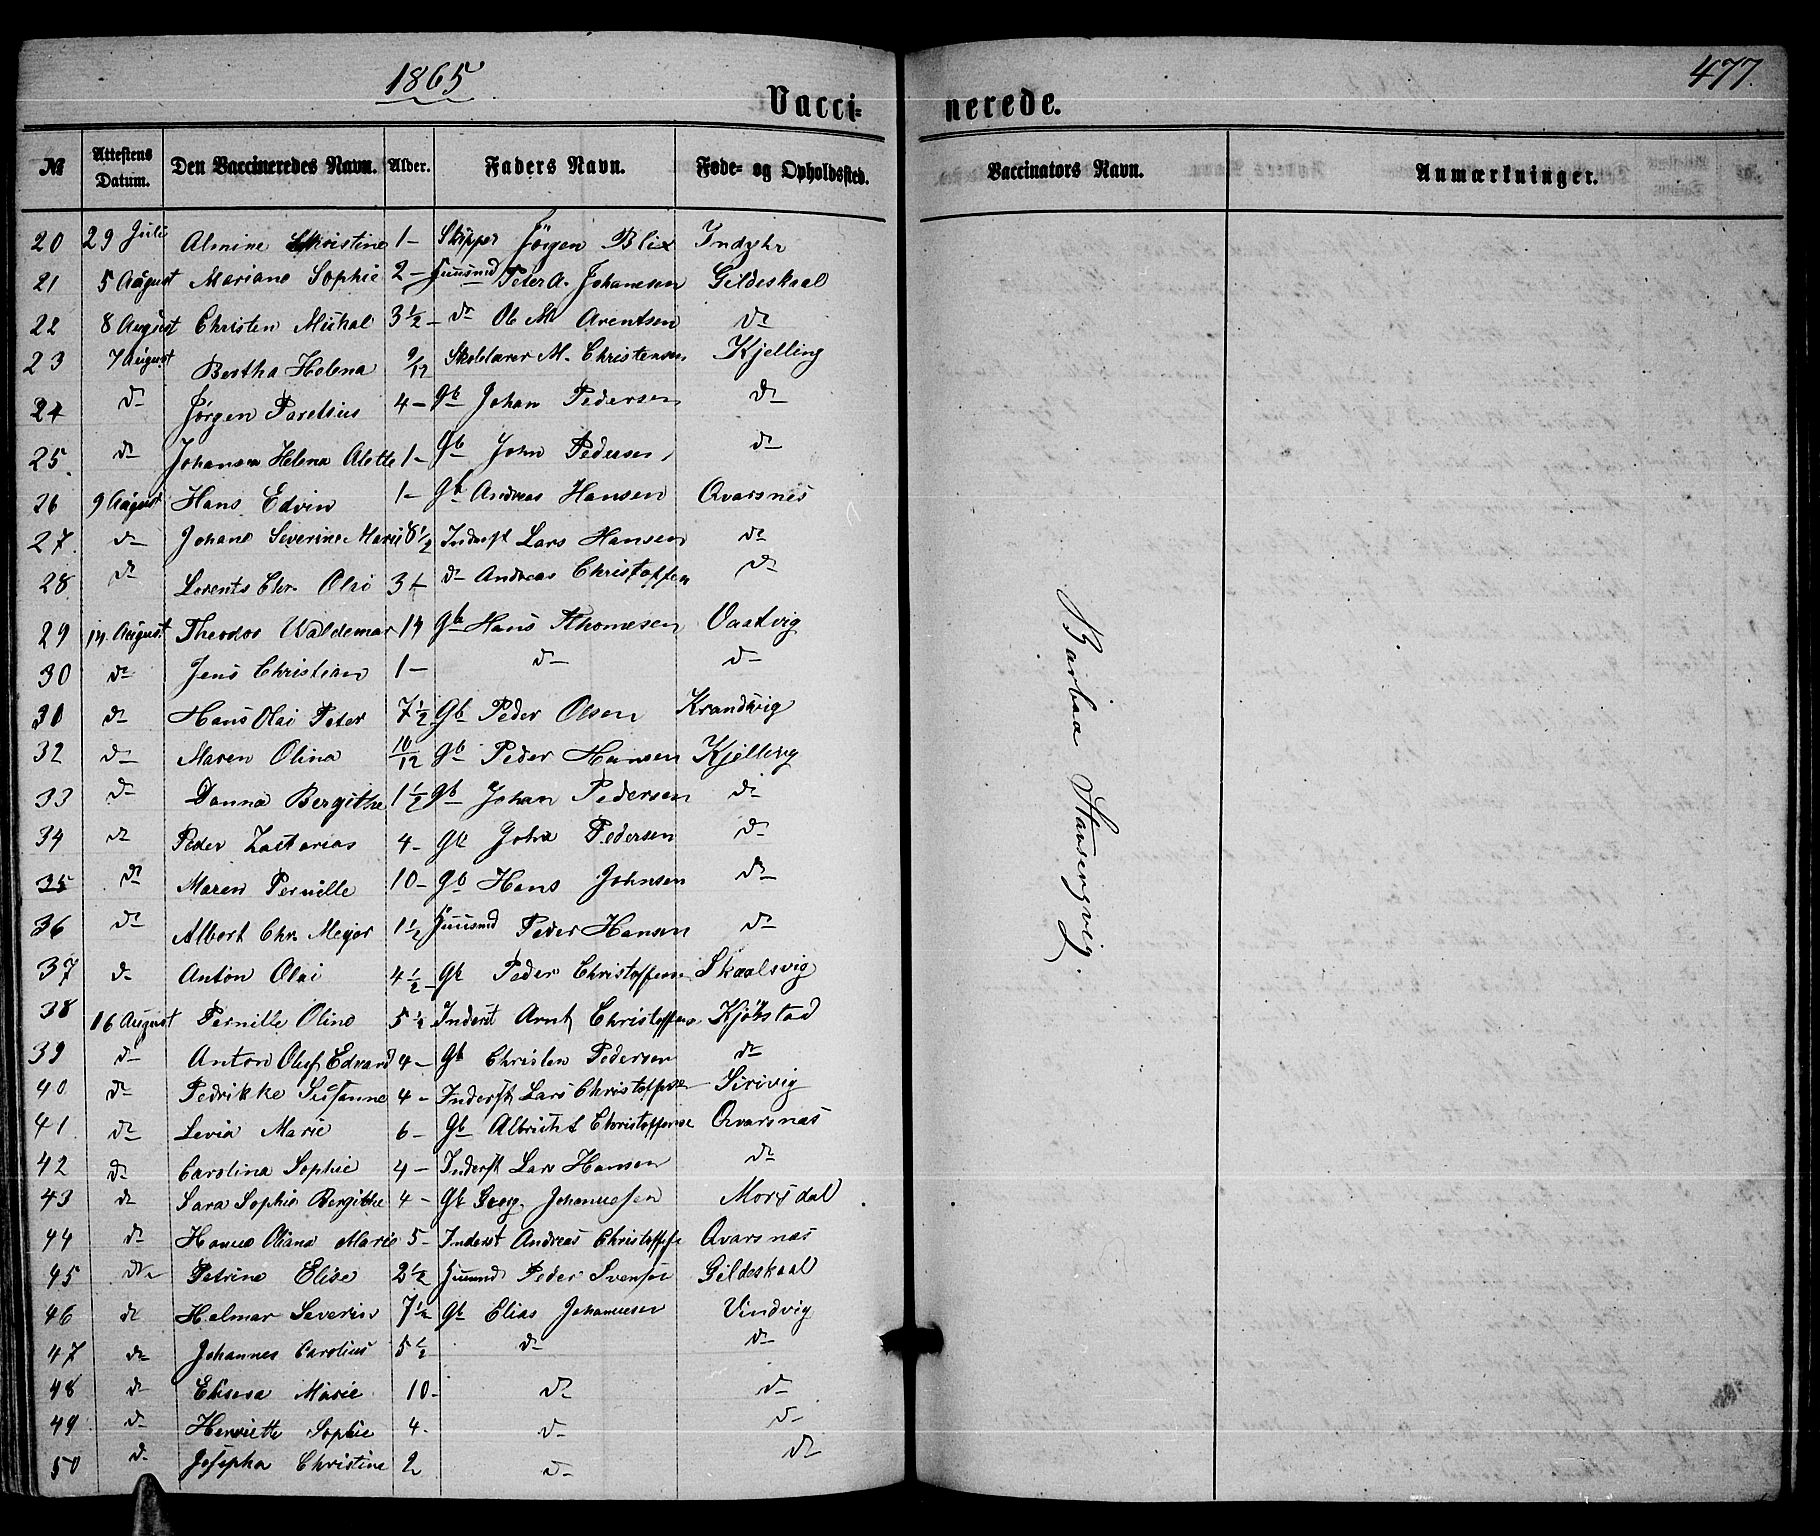 1865
477.
Vacci- nerede.
№ Attestens Datum. Den Vaccineredes Navn. Alder. Faders Navn. Føde- og Opholdssted. Vaccinators Navn. Anmærkninger.
20 29 Juli Almine Christine 1 - Skipper Jörgen Blix Indyhr
21 5 August Mariane Sophie 2 - Huusmd Peter A. Johanesen Gildeskaal
22 8 August Christen Mikal 3 1/2 - do Ole M Arentsen do
23 7 August Bertha Helena 9/12 Skolelærer M. Christensen Kjelling
24 do Jörgen Parelius 4 - Gb Johan Pedersen do
25. do Johanna Helena Alette 1 - Gb John Pedersen do
26 9 August Hans Edvin 1 - Gb Andreas Hansen Qvarsnes
27. do Johane Severine Marie 8 1/2 Inderst Lars Hansen do
28 do Lorents Chr. Olai 3 - do Andreas Christoffen do
29 14. August Theodor Waldemar 14 Gb Hans Thomesen Vaatvig
30 do Jens Christian 1 - do do
30 do Hans Olai Peter 7 1/2 Gb Peder Olsen Krandvig
32 do Maren Olina 10/12 Gb Peder Hansen Kjelling
33 do Danna Bergithe 1 1/2 Gb Johan Pedersen do
34 do Peder Zacharias 4 - Gb John Pedersen do
35 do Maren Pernille 10 - Gb Hans Johnsen do
36 do Albert Chr. Meyer 1 1/2 Huusmd Peder Hansen do
37 do Anton Olai 4 1/2 - Gb Peder Christoffense Skaalsvig
38 16 August Pernille Oline 5 1/2 Inderst Arnt Christoffens Kjöbstad
39 do Anton Oluf Edvard 4 - Gb Christen Pedersen do
40 do Pedrikke Susanne 4 - Inderst Lars Christofse Sörvig
41. do Levia Marie 6 - Gb Albricht Christoffense Qvarsnas
42 do Carolina Sophie 4 - Inderst Lars Hansen do
43 do Sara Sophie Bergithe 4 - Gb Georg Johannesen Morsdal
44 do Hanna Oliana Marie 5 - Inderst Andreas Christoffse Qvarsnas
45 do Petrine Elise 2 1/2 Huusmd Peder Svensen Gildeskaal
46 do Helmer Severin 7 1/2 Gb Elias Johannesen Vindvig
47 do Johannes Carolius 5 1/2 do do
48 do Marie 10 - do do
49 do Henriette Sophie 4 - do do
50 do Josepha Christine 2 do do